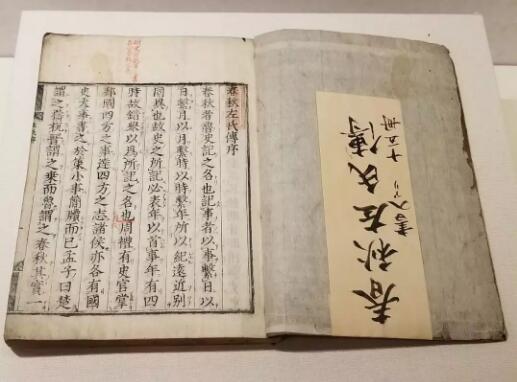 春秋左氏傳
書入アリ 十五冊
春秋左氏傳序
春秋者魯史記之名也記事者以事繫日以
日繫月以月繫時以時繫年所以紀遠近別
同異也故史之所記必表年以首事年有四
時故錯舉以爲所記之名也周禮有史官掌
邦國四方之事達四方之志諸侯亦各有國
史大事書之於策小事簡牘而已孟子曰楚
謂之檮杌晉謂之乘而魯謂之春秋其實一